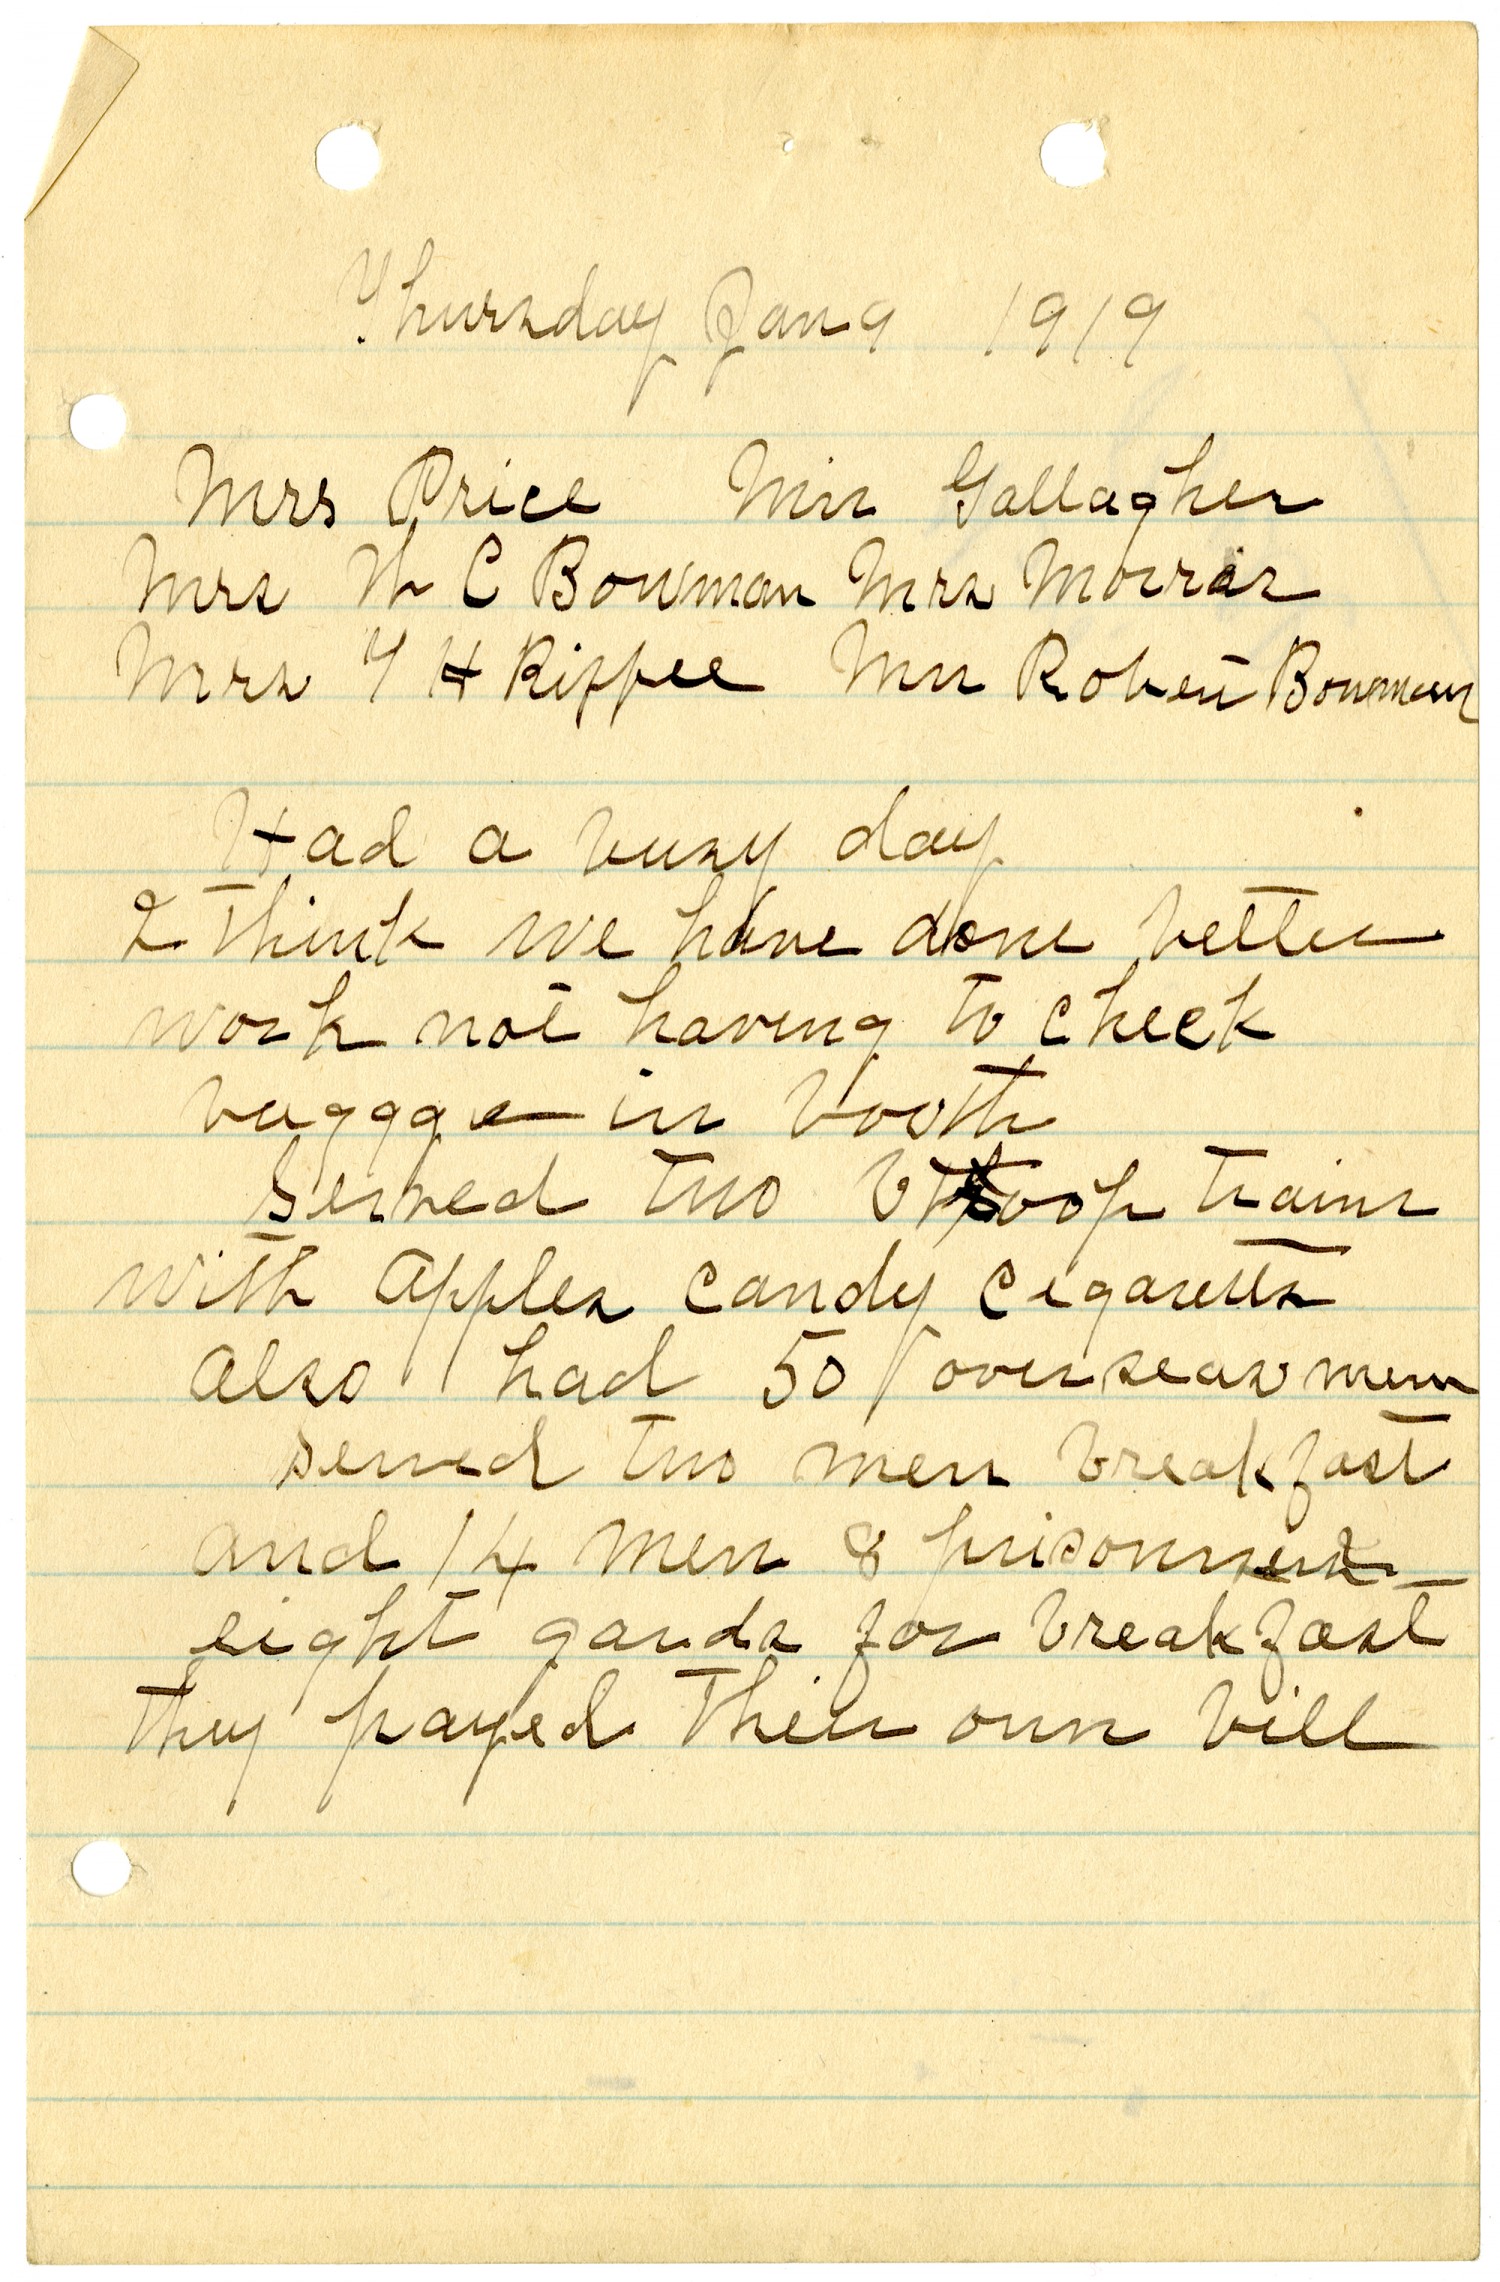 Thursday Jan 9 1919
Mrs Price Miss Gallagher
Mrs W C Bowman Mrs
Mrs T H Rippee Mrs Robert Bowman
Had a busy day
I think we have done better
work not having to check
baggge in booth
Served two troop trains
with apples candy cigaretts
also had 50 overseas men
served two men breakfast
and 14 men 8 prisonners
eight gards for breakfast
they payed their own bill